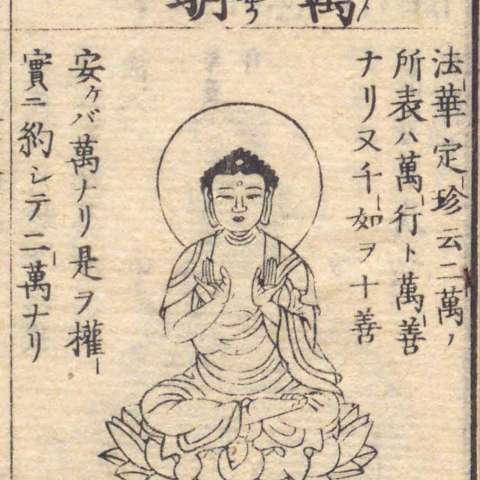 法華定珍云二萬ノ
所表ハ萬行ト萬善
ナリ又千如ヲ十善
安ケバ萬ナリ是ヲ權
實ニ約シテ二萬ナリ